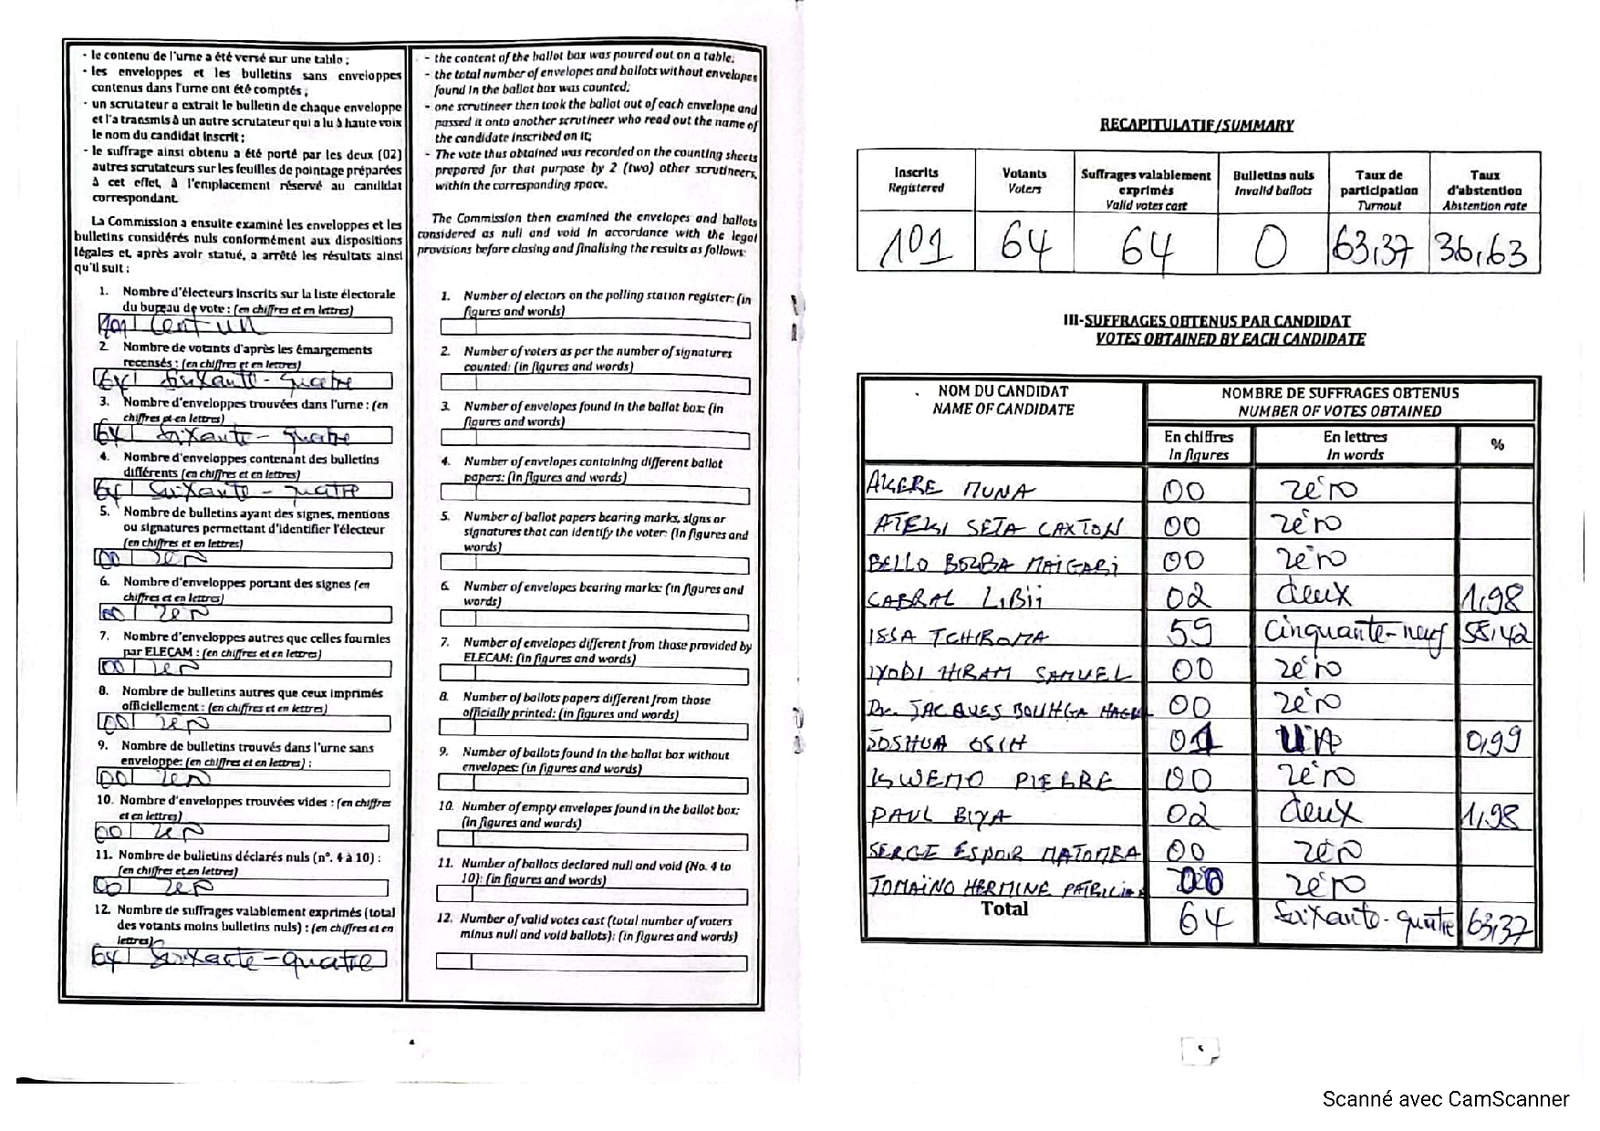 - le contenu de l'urne a été versé sur une table ;
- les enveloppes et les bulletins sans enveloppes
contenus dans l'urne ont été comptés ;
- un scrutateur a extrait le bulletin de chaque enveloppe
et l'a transmis à un autre scrutateur qui a lu à haute voix
le nom du candidat inscrit ;
- le suffrage ainsi obtenu a été porté par les deux (02)
autres scrutateurs sur les feuilles de pointage préparées
à cet effet, à l'emplacement réservé au candidat
correspondant.
La Commission a ensuite examiné les enveloppes et les
bulletins considérés nuls conformément aux dispositions
légales et, après avoir statué, a arrêté les résultats ainsi
qu'il suit :
1. Nombre d'électeurs inscrits sur la liste électorale
du bureau de vote : (en chiffres et en lettres)
101 Cent un
2. Nombre de votants d'après les émargements
recensés : (en chiffres et en lettres)
64 Soixante-quatre
3. Nombre d'enveloppes trouvées dans l'urne : (en
chiffres et en lettres)
64 Soixante-quatre
4. Nombre d'enveloppes contenant des bulletins
différents (en chiffres et en lettres)
64 Soixante-quatre
5. Nombre de bulletins ayant des signes, mentions
ou signatures permettant d'identifier l'électeur
(en chiffres et en lettres)
00 zéro
6. Nombre d'enveloppes portant des signes (en
chiffres et en lettres)
00 zéro
7. Nombre d'enveloppes autres que celles fournies
par ELECAM : (en chiffres et en lettres)
00 zéro
8. Nombre de bulletins autres que ceux imprimés
officiellement : (en chiffres et en lettres)
00 zéro
9. Nombre de bulletins trouvés dans l'urne sans
enveloppe: (en chiffres et en lettres) :
00 zéro
10. Nombre d'enveloppes trouvées vides : (en chiffres
et en lettres)
00 zéro
11. Nombre de bulletins déclarés nuls (n°. 4 à 10) :
(en chiffres et en lettres)
00 zéro
12. Nombre de suffrages valablement exprimés (total
des votants moins bulletins nuls) : (en chiffres et en
lettres)
64 Soixante-quatre
- the content of the ballot box was poured out on a table;
- the total number of envelopes and ballots without envelopes
found in the ballot box was counted;
- one scrutineer then took the ballot out of each envelope and
passed it onto another scrutineer who read out the name of
the candidate inscribed on it;
- The vote thus obtained was recorded on the counting sheets
prepared for that purpose by 2 (two) other scrutineers,
within the corresponding space.
The Commission then examined the envelopes and ballots
considered as null and void in accordance with the legal
provisions before closing and finalising the results as follows:
1. Number of electors on the polling station register: (in
figures and words)
2. Number of voters as per the number of signatures
counted: (in figures and words)
3. Number of envelopes found in the ballot box: (in
figures and words)
4. Number of envelopes containing different ballot
papers: (in figures and words)
5. Number of ballot papers bearing marks, signs or
signatures that can identify the voter: (in figures and
words)
6. Number of envelopes bearing marks: (in figures and
words)
7. Number of envelopes different from those provided by
ELECAM: (in figures and words)
8. Number of ballots papers different from those
officially printed: (in figures and words)
9. Number of ballots found in the ballot box without
envelopes: (in figures and words)
10. Number of empty envelopes found in the ballot box:
(in figures and words)
11. Number of ballots declared null and void (No. 4 to
10): (in figures and words)
12. Number of valid votes cast (total number of voters
minus null and void ballots): (in figures and words)
RECAPITULATIF/SUMMARY
Inscrits Registered | Votants Voters | Suffrages valablement exprimés Valid votes cast | Bulletins nuls Invalid ballots | Taux de participation Turnout | Taux d'abstention Abstention rate
101 | 64 | 64 | 0 | 63,37 | 36,63
III-SUFFRAGES OBTENUS PAR CANDIDAT
VOTES OBTAINED BY EACH CANDIDATE
NOM DU CANDIDAT NAME OF CANDIDATE | NOMBRE DE SUFFRAGES OBTENUS NUMBER OF VOTES OBTAINED
En chiffres In figures | En lettres In words | %
AKERE MUNA 00 zéro
ATEKI SETA CAXTON 00 zéro
BELLO BOUBA MAIGARI 00 zéro
CABRAL LIBII 02 deux 1,98
ISSA TCHIROMA 59 Cinquante-neuf 58,42
IYODI HIRAM SAMUEL 00 zéro
Dr. JACQUES BOUHGA 00 zéro
JOSHUA OSIH 01 UN 0,99
KWEMO PIERRE 00 zéro
PAUL BIYA 02 deux 1,98
SERGE ESPOIR MATOMBA 00 zéro
TOMAINO HERMINE PATRICIA 00 zéro
Total 64 Soixante-quatre 63,37
Scanné avec CamScanner